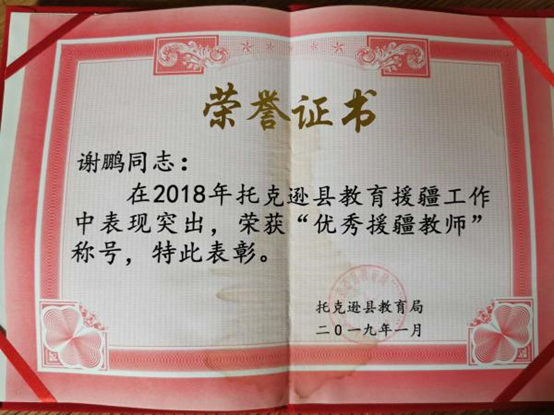 荣誉证书
谢鹏同志：
在2018年托克逊县教育援疆工作
中表现突出，荣获“优秀援疆教师”
称号，特此表彰。
托克逊县教育局
二〇一九年一月